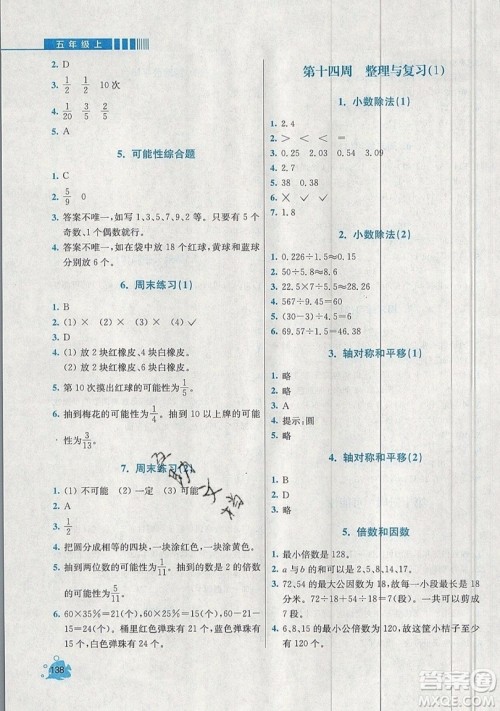 五年级上
2. D
3. 1/2 1/2 10次
4. 1/20 3/5 1/4
5. A
5. 可能性综合题
1. C
2. 5/9 0
3. 答案不唯一,如写 1、3、5、7、9、2 等。只要有 5 个
奇数、1 个偶数就行。
4. 答案不唯一,如在袋中放 18 个红球,黄球和蓝球
分别放 6 个。
6. 周末练习(1)
1. B
2. (1) × (2) × (3) × (4) ✓
3. D
4. (1) 放 2 块红橡皮。 (2) 放 2 块白橡皮。
5. 第 10 次摸出红球的可能性为 1/5。
6. 抽到梅花的可能性为 1/4。抽到 10 以上牌的可能
性为 3/13。
7. 周末练习(2)
1. (1) 不可能 (2) 一定 (3) 可能
2. A
3. 1/2
4. 把圆分成相等的四块,一块涂红色,一块涂黄色。
5. 抽到两位数的可能性大。抽到两位数的可能性为
11/20。
6. 60×35%=21(个) 60×20%=12(个) 60-21-
12=27(个) 桶里红色弹珠有 21 个,黄色弹珠
有 12 个,蓝色弹珠有 27 个。
138
第十四周 整理与复习(1)
1. 小数除法(1)
1. 2.4
2. > < = =
3. 0.25 2.03 0.54 0.29
4. 0.18
5. 38 0.38
6. ✓ × ✓
7. 1.89
2. 小数除法(2)
1. 0.226÷1.5≈0.15
2. 50÷5.8≈8.62
3. 22.5×7÷25=6.3
4. 567÷9.45=60
5. (30-3)÷5=5.4
6. 69.57÷1.2≈57.98
3. 轴对称和平移(1)
1. 略
2. 略
3. A
4. 提示:圆
5. 略
4. 轴对称和平移(2)
略
5. 倍数和因数
1. 最小倍数是 128。
2. a 与 b 的和可以是 2、5、14、17。
3. 72、54 的最大公因数是 18,所以每段最长可以是
18 厘米。72÷18+54÷18=7(段),一共可以剪成
7 段。
4. 6、8、15 的最小公倍数是 120,所以这筐小桔子至
少有 120 个。
MXQE.COM